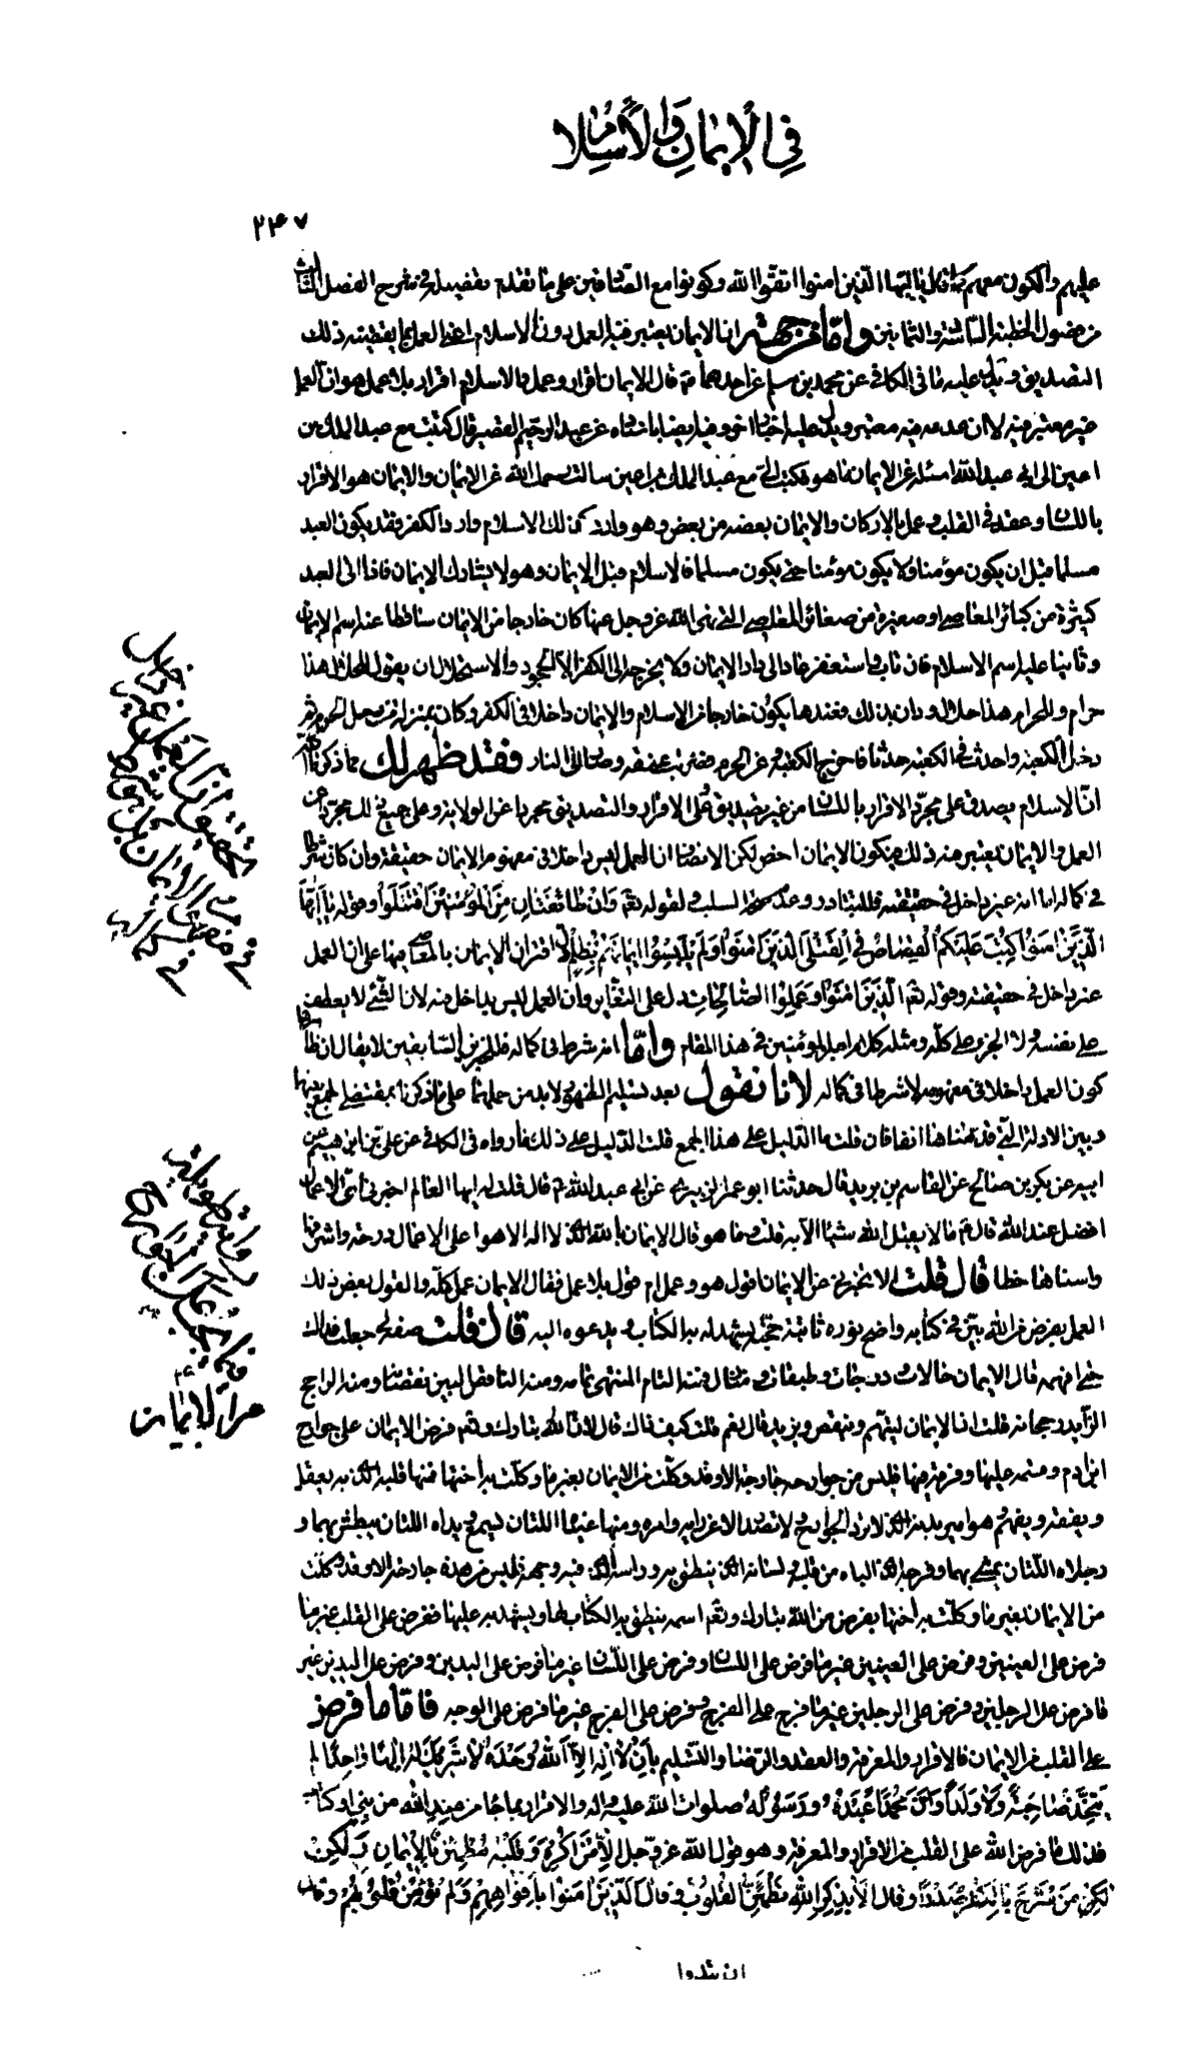 في الإيمان والاسلام
٢٤٧
عليهم والكون معهم كما قال يا ايها الذين امنوا اتقوا الله وكونوا مع الصادقين على ما تقدم تفصيله في شرح الفصل الثالث
من فصول الخطبة الثالثة والثمانين واما من جهة ان الايمان يعتبر فيه العمل دون الاسلام اعني العمل بما يقتضيه ذلك
التصديق ويدل عليه ما في الكافي عن محمد بن مسلم عن احدهما ع قال الايمان اقرار وعمل والاسلام اقرار بلا عمل هو ان العمل
غير معتبر فيه لا ان عدمه فيه معتبر ويدل عليه اخبار اخر وفيه ايضا باسناده عن عبد الرحيم القصير قال كتبت مع عبد الملك بن
اعين الى ابي عبد الله اسئله عن الايمان ما هو فكتب الي مع عبد الملك بن اعين سالت رحمك الله عن الايمان والايمان هو الاقرار
باللسان وعقد في القلب وعمل بالاركان والايمان بعضه من بعض وهو دار وكذلك الاسلام دار والكفر فقد يكون العبد
مسلما قبل ان يكون مؤمنا ولا يكون مؤمنا حتى يكون مسلما فالاسلام قبل الايمان وهو لا يشارك الايمان فاذا اتى العبد
كبيرة من كبائر المعاصي او صغيرة من صغائر المعاصي التي نهى الله عز وجل عنها كان خارجا من الايمان ساقطا عنه اسم الايمان
وثابتا عليه اسم الاسلام فان تاب واستغفر عاد الى دار الايمان ولا يخرجه الى الكفر الا الجحود والاستحلال ان يقول للحلال هذا
حرام وللحرام هذا حلال ودان بذلك فعندها يكون خارجا من الاسلام والايمان داخلا في الكفر وكان بمنزلة من دخل الحرم ثم
دخل الكعبة واحدث في الكعبة حدثا فاخرج عن الكعبة وعن الحرم فضربت عنقه وصار الى النار فقد ظهر لك مما ذكرنا
ان الاسلام يصدق على مجرد الاقرار باللسان من غير تصديق وعلى الاقرار والتصديق مجردا عن الولاية وعلى جميع ذلك مجردا عن
العمل والايمان يعتبر فيه ذلك فيكون الايمان اخص لكن الانصاف ان العمل ليس داخلا في مفهوم الايمان حقيقة وان كان شرطا
في كماله اما انه غير داخل في حقيقته فللتبادر وعدم صحة السلب ولقوله تعم وان طائفتان من المؤمنين اقتتلوا وقوله يا ايها
الذين امنوا كتب عليكم القصاص في القتلى الذين امنوا ولم يلبسوا ايمانهم بظلم لاقتران الايمان بالمعاصي فيها على ان العمل
غير داخل في حقيقته وقوله تعم الذين امنوا وعملوا الصالحات يدل على التغاير وان العمل ليس بداخل فيه لان الشيء لا يعطف
على نفسه ولا الجزء على كله ومثله كلام امير المؤمنين في هذا المقام واما انه شرط في كماله فللخبرين السابقين لا يقال ان ظاهرهما
كون العمل داخلا في مفهومه لا شرطا في كماله لانا نقول بعد تسليم الظهور لا بد من حملهما على ما ذكرنا بمقتضى الجمع بينها
وبين الادلة التي قدمناها انفا فان قلت ما الدليل على هذا الجمع قلت الدليل على ذلك ما رواه في الكافي عن علي بن ابرهيم عن
ابيه عن بكر بن صالح عن القاسم بن بريد قال حدثنا ابو عمرو الزبيري عن ابي عبد الله ع قال قلت له ايها العالم اخبرني اي الاعمال
افضل عند الله قال ع ما لا يقبل الله شيئا الا به قلت وما هو قال الايمان بالله الذي لا اله الا هو اعلى الاعمال درجة واشرفها
واسناها حظا قال قلت الا تخبرني عن الايمان اقول هو وعمل ام قول بلا عمل فقال الايمان عمل كله والقول بعض ذلك
العمل بفرض من الله بين في كتابه واضح نوره ثابتة حجته يشهد له به الكتاب ويدعوه اليه قال قلت صفه لي جعلت فداك
حتى افهمه قال الايمان حالات ودرجات وطبقات ومنازل فمنه التام المنتهي تمامه ومنه الناقص البين نقصانه ومنه الراجح
الزايد رجحانه قلت ان الايمان ليتم وينقص ويزيد قال نعم قلت كيف ذاك قال لان الله تبارك وتعم فرض الايمان على جوارح
ابن ادم وقسمه عليها وفرقه فيها فليس من جوارحه جارحة الا وقد وكلت من الايمان بغير ما وكلت به اختها فمنها قلبه الذي به يعقل
ويفقه ويفهم وهو امير بدنه الذي لا ترد الجوارح ولا تصدر الا عن رايه وامره ومنها عيناه اللتان يبصر بهما ويداه اللتان يبطش بهما و
رجلاه اللتان يمشي بهما وفرجه الذي الباه من قبله ولسانه الذي ينطق به وراسه الذي فيه وجهه فليس من هذه جارحة الا وقد وكلت
من الايمان بغير ما وكلت به اختها بفرض من الله تبارك وتعم اسمه ينطق به الكتاب لها ويشهد به عليها ففرض على القلب غير ما
فرض على العينين وفرض على العينين غير ما فرض على اللسان وفرض على اللسان غير ما فرض على اليدين وفرض على اليدين غير
ما فرض على الرجلين وفرض على الرجلين غير ما فرض على الفرج وفرض على الفرج غير ما فرض على الوجه فاما ما فرض
على القلب من الايمان فالاقرار والمعرفة والعقد والرضا والتسليم بان لا اله الا الله وحده لا شريك له الها واحدا لم
يتخذ صاحبة ولا ولدا وان محمدا عبده ورسوله صلوات الله عليه واله والاقرار بما جاء من عند الله من نبي او كتاب
فذلك ما فرض الله على القلب من الاقرار والمعرفة وهو قول الله عز وجل الا من اكره وقلبه مطمئن بالايمان ولكن
من شرح بالكفر صدرا وقال الا بذكر الله تطمئن القلوب وقال الذين امنوا بافواههم ولم تؤمن قلوبهم وقال
ان تبدوا
تحقيق ان العمل غير داخل
في مفهوم الايمان بل هو شرط
في كماله
رواية طويلة
فيما يجب على الجوارح
من الايمان